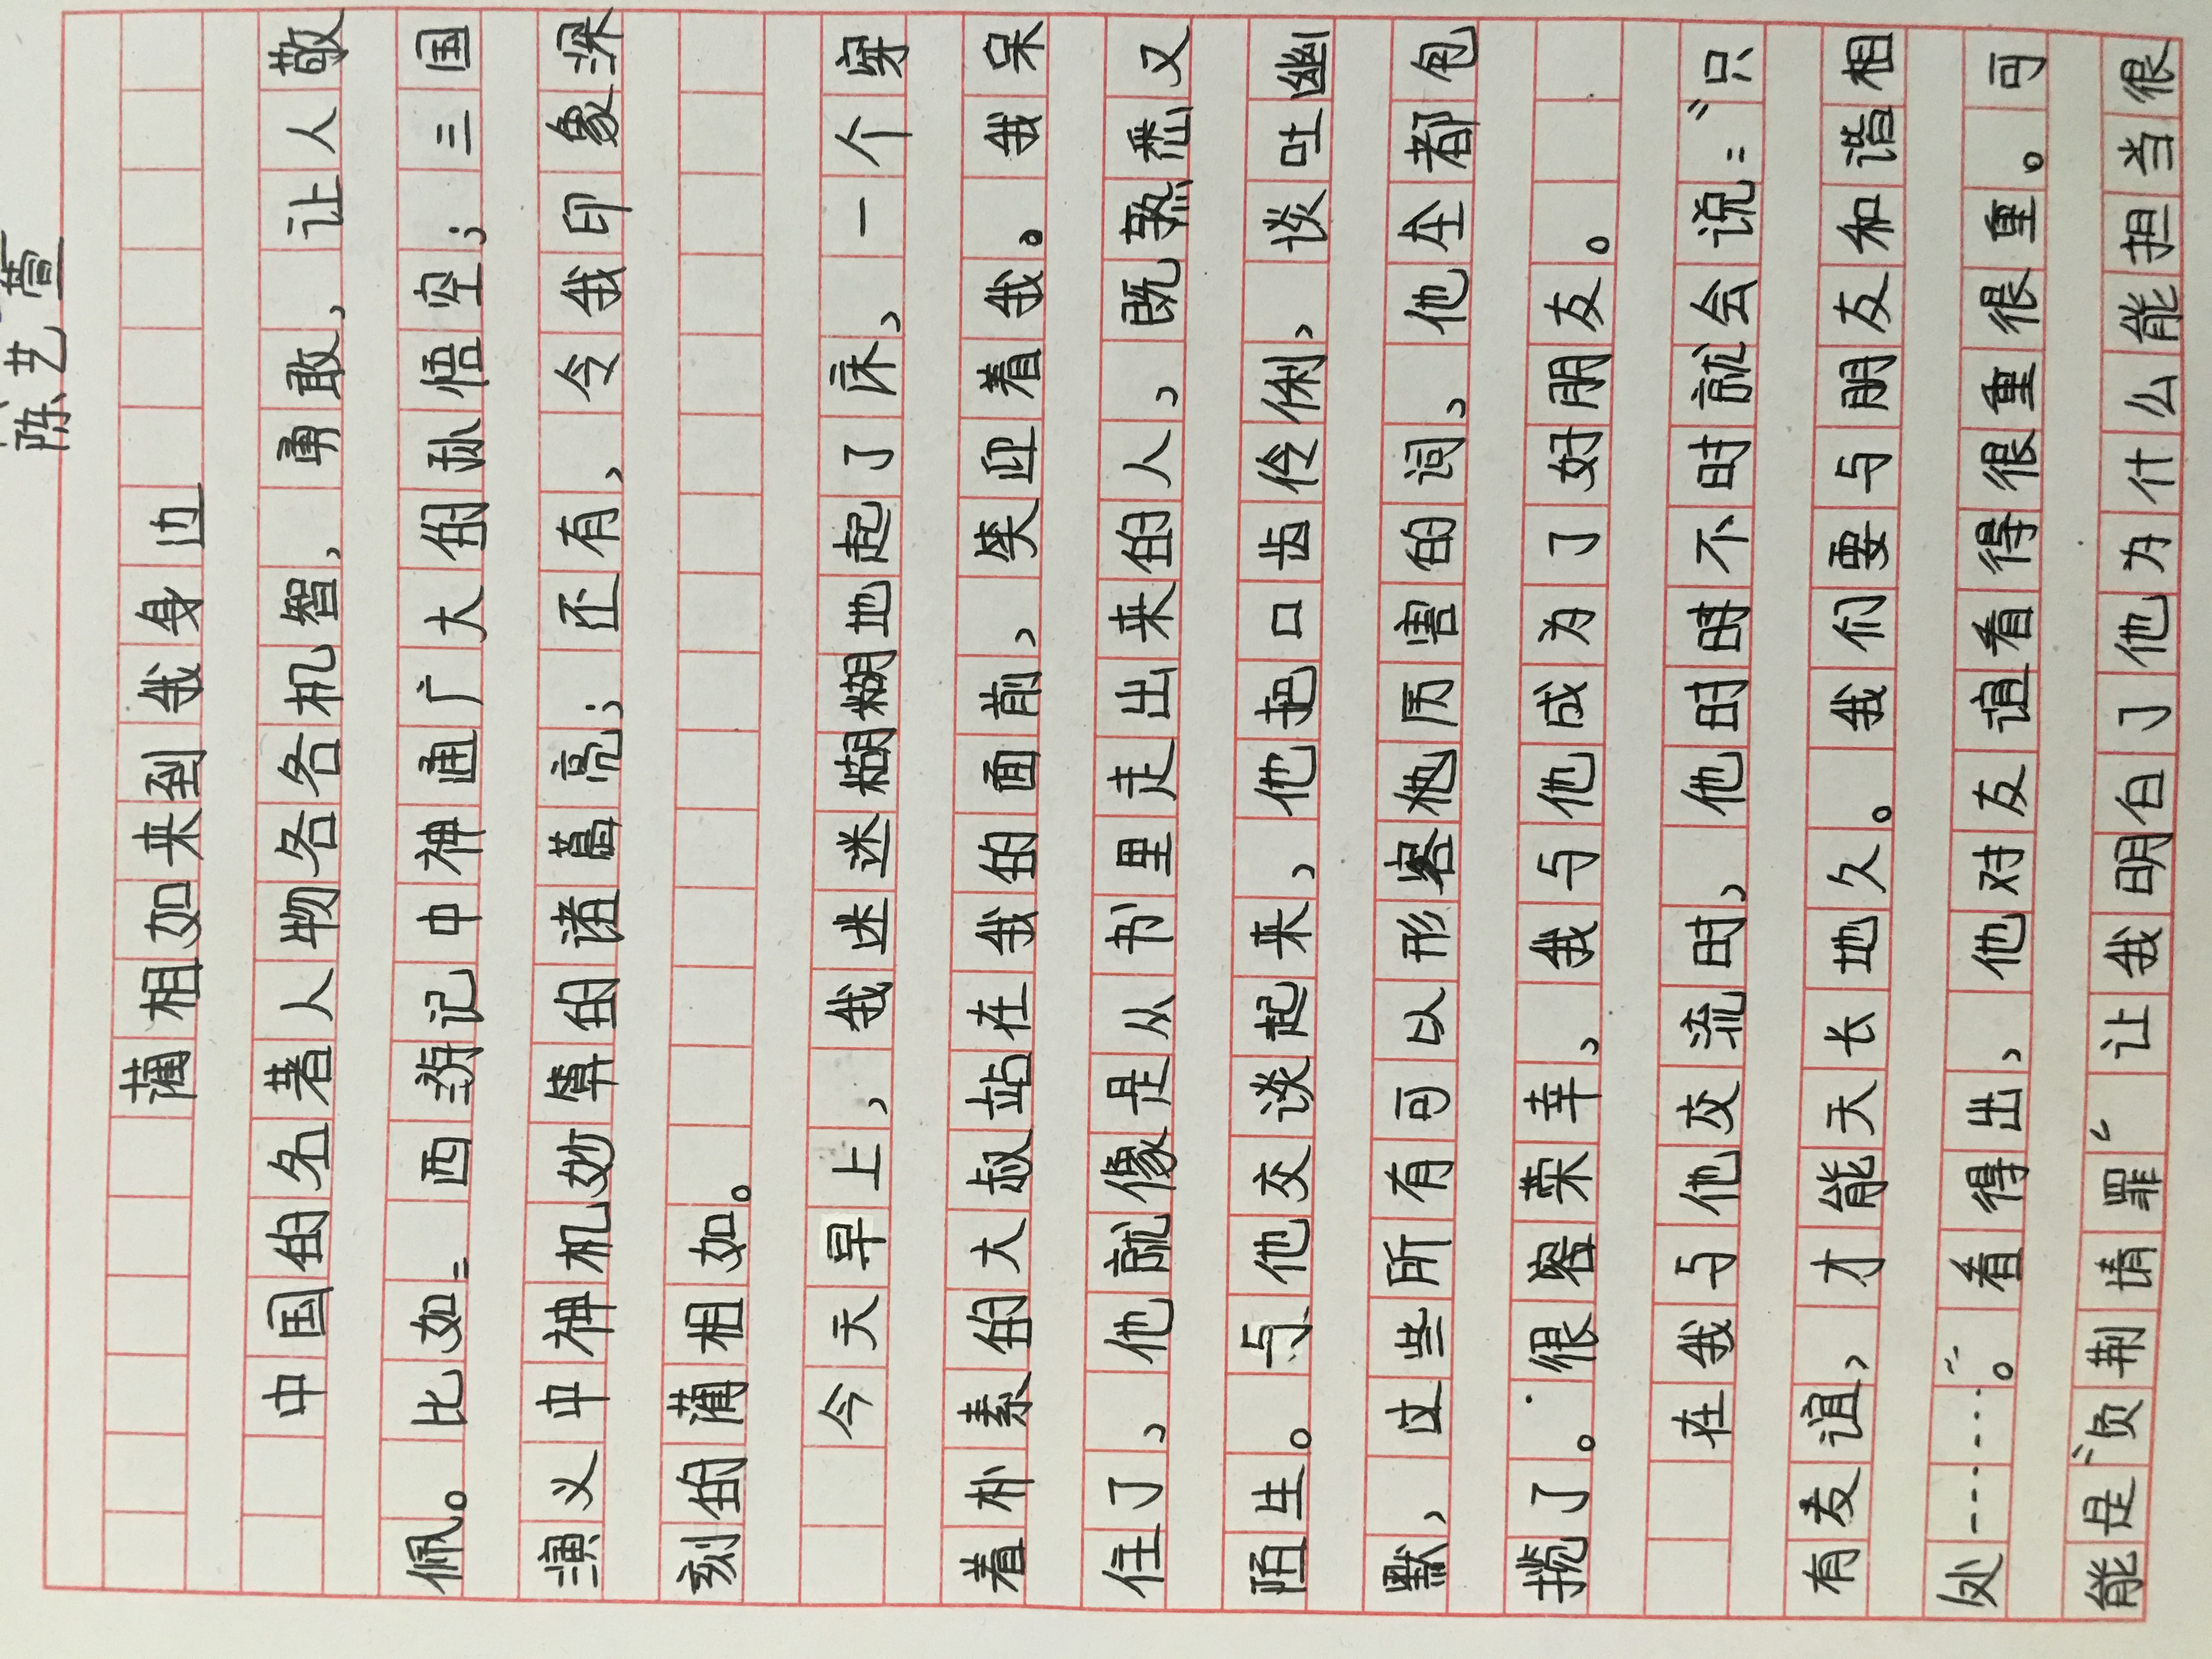 陈艺萱
蔺相如来到我身边
中国的名著人物各各机智,勇敢,让人敬
佩。比如:西游记中神通广大的孙悟空;三国
演义中神机妙算的诸葛亮;还有,令我印象深
刻的蔺相如。
今天早上,我迷迷糊糊地起了床,一个穿
着朴素的大叔站在我的面前,笑迎着我。我呆
住了,他就像是从书里走出来的人,既熟悉又
陌生。与他交谈起来,他把口齿伶俐,谈吐幽
默,这些所有可以形容他厉害的词,他全都包
揽了。很容荣幸,我与他成为了好朋友。
在我与他交流时,他时时不时就会说:“只
有友谊,才能天长地久。我们要与朋友和谐相
处……。”看得出,他对友谊看得很重很重。可
能是“负荆请罪”让我明白了他为什么能担当很